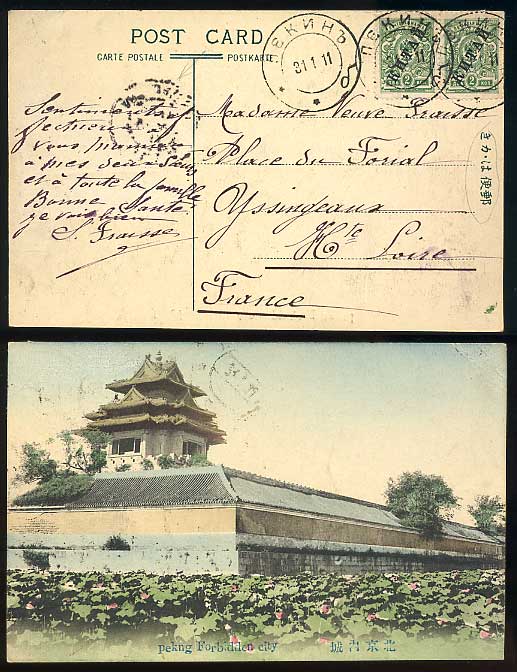 POST CARD
CARTE POSTALE
POSTKARTE
ПЕКИНЪ
31 1 11
ПЕКИНЪ
КИТАЙ
КИТАЙ
2
2
Sentiments af
fectueux
à mes
et à toute la famille
Bonne Santé
je vous
S. Fraisse
Madame Veuve Fraisse
Place du Forial
Yssingeaux
Hte Loire
France
きかは便郵
pekng Forbidden city
城內京北